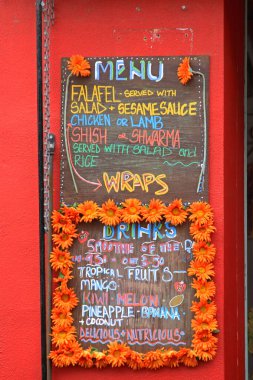 MENU
FALAFEL - SERVED WITH
SALAD + SESAME SAUCE
CHICKEN OR LAMB
SHISH OR SHWARMA
SERVED WITH SALAD and
RICE
WRAPS
DRINKS
SMOOTHIE OF THE DAY
TROPICAL FRUITS
MANGO
KIWI - MELON
PINEAPPLE - BANANA
+ COCONUT
DELICIOUS + NUTRICIOUS